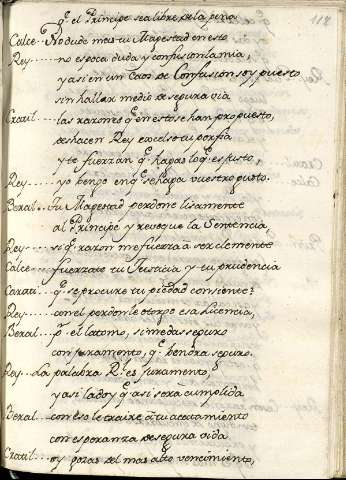 112
q̃ el Principe sea libre dela pena
Calce - No dude mas tu Magestad en esto
Rey ---- no es poca duda y confusion la mia,
y asi en un Caos de Confusion soy puesto
sin hallar medio de segura via
Cratil .. las razones q̃ en esto se han propuesto,
deshacen Rey excelso tu porfia
y te fuerzan q̃ hagas lo q̃ es justo,
Rey ---- yo bengo en q̃ se haga vuestro gusto.
Beral .. tu Magestad perdone lisamente
al Principe y revoque la Sentencia
Rey ---- si q̃ razon me fuerza a ser clemente
Calce ... fuerzate tu Justicia y tu prudencia
q̃ se procure tu piedad consiente?
Rey ---- con el perdon le otorgo esa Licencia,
Beral .. si me das seguro
con juramento, q̃ bendra seguro.
Rey -- La palabra R.l es juramento,
y asi la doy q̃ asi sera cumplida
Beral .. con eso le traire a tu acatamiento
con esperanza de segura vida
Cratil .. oy gozas del mas alto vencimiento,